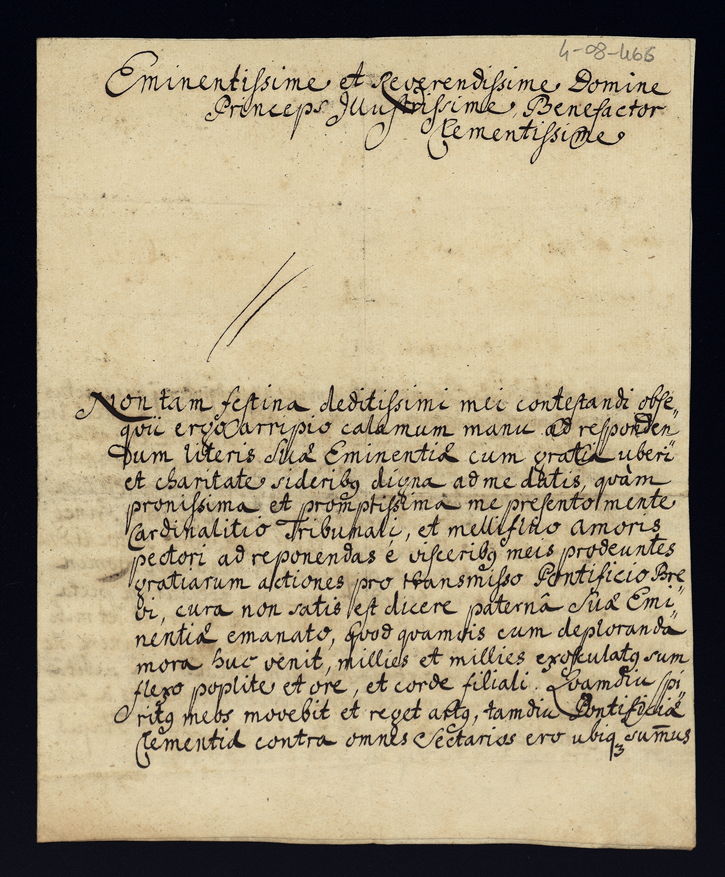 4-08-466
Eminentissime et Reverendissime Domine
Princeps Illustrissime, Benefactor
Clementissime
Non tam festina deditissimi mei contestandi obse„
qvii ergo arripio calamum manu ad responden„
dum literis Suæ Eminentiæ cum gratia uberi
et charitate sideribꝫ digna ad me datis, qvàm
pronissima et promptissima me presento mente
Cardinalitio Tribunali, et mellifluo amoris
pectori ad reponendas è visceribꝫ meis prodeuntes
gratiarum actiones pro transmisso Pontificio Bre„
vi, cura non satis est dicere paternâ Suæ Emi„
nentiæ emanato, Qvod qvamvis cum deplorandâ
mora huc venit, millies et millies exosculatꝫ sum
flexo poplite et ore, et corde filiali. Qvamdiu spi„
ritꝫ meos movebit et reget artꝫ, tamdiu Pontificiæ
Clementiæ contra omnes Sectarios ero ubiqꝫ sum̄us